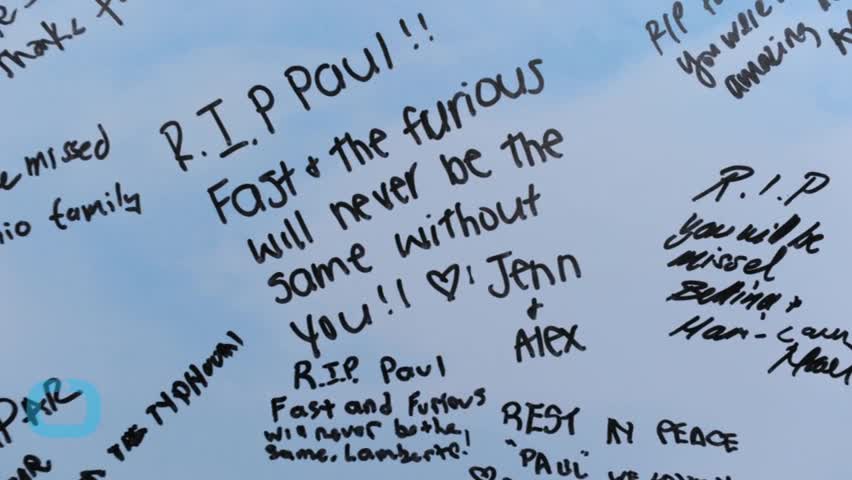 Thanks
R.I.P Paul!!
Fast & the furious
will never be the
same without
you!! ♡, Jenn
&
Alex
RIP
you were
amazing
missed
family
R.I.P
you will be
missed
R.I.P. Paul
Fast and Furious
will never be the
same. Lamberte!
REST IN PEACE
"PAUL" WE
THE TYPHOON!